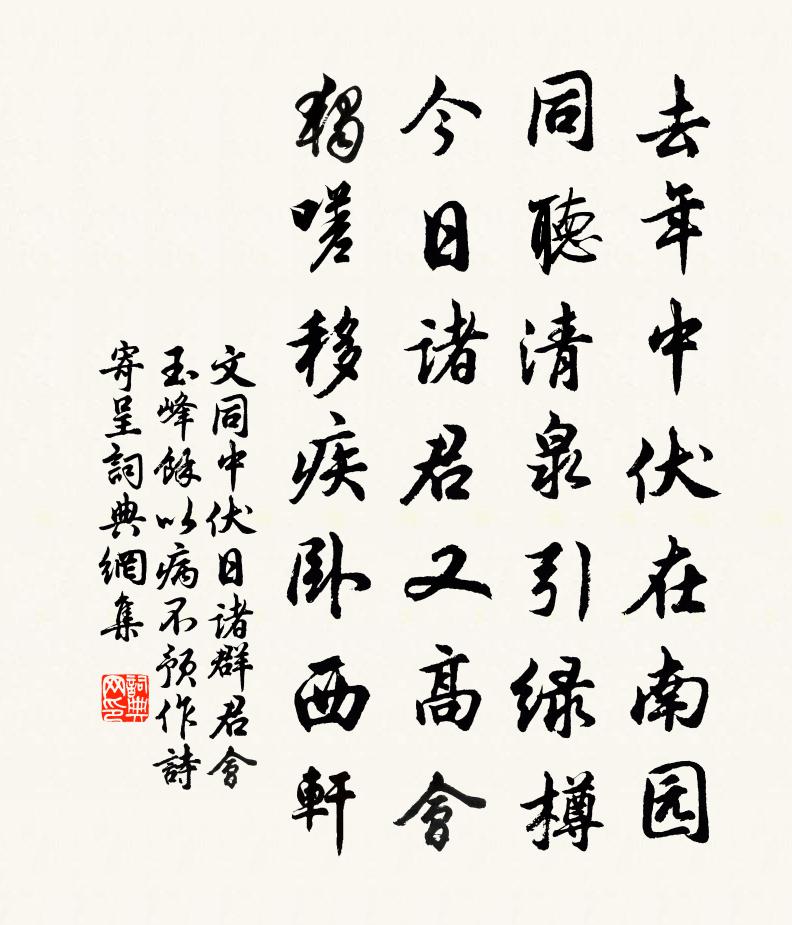 去年中伏在南园
同聽清泉引绿樽
今日諸君又高會
獨嗟移疾卧西軒
文同中伏日諸群君會
玉峰餘以病不預作詩
寄呈詞典網集
詞典
网印